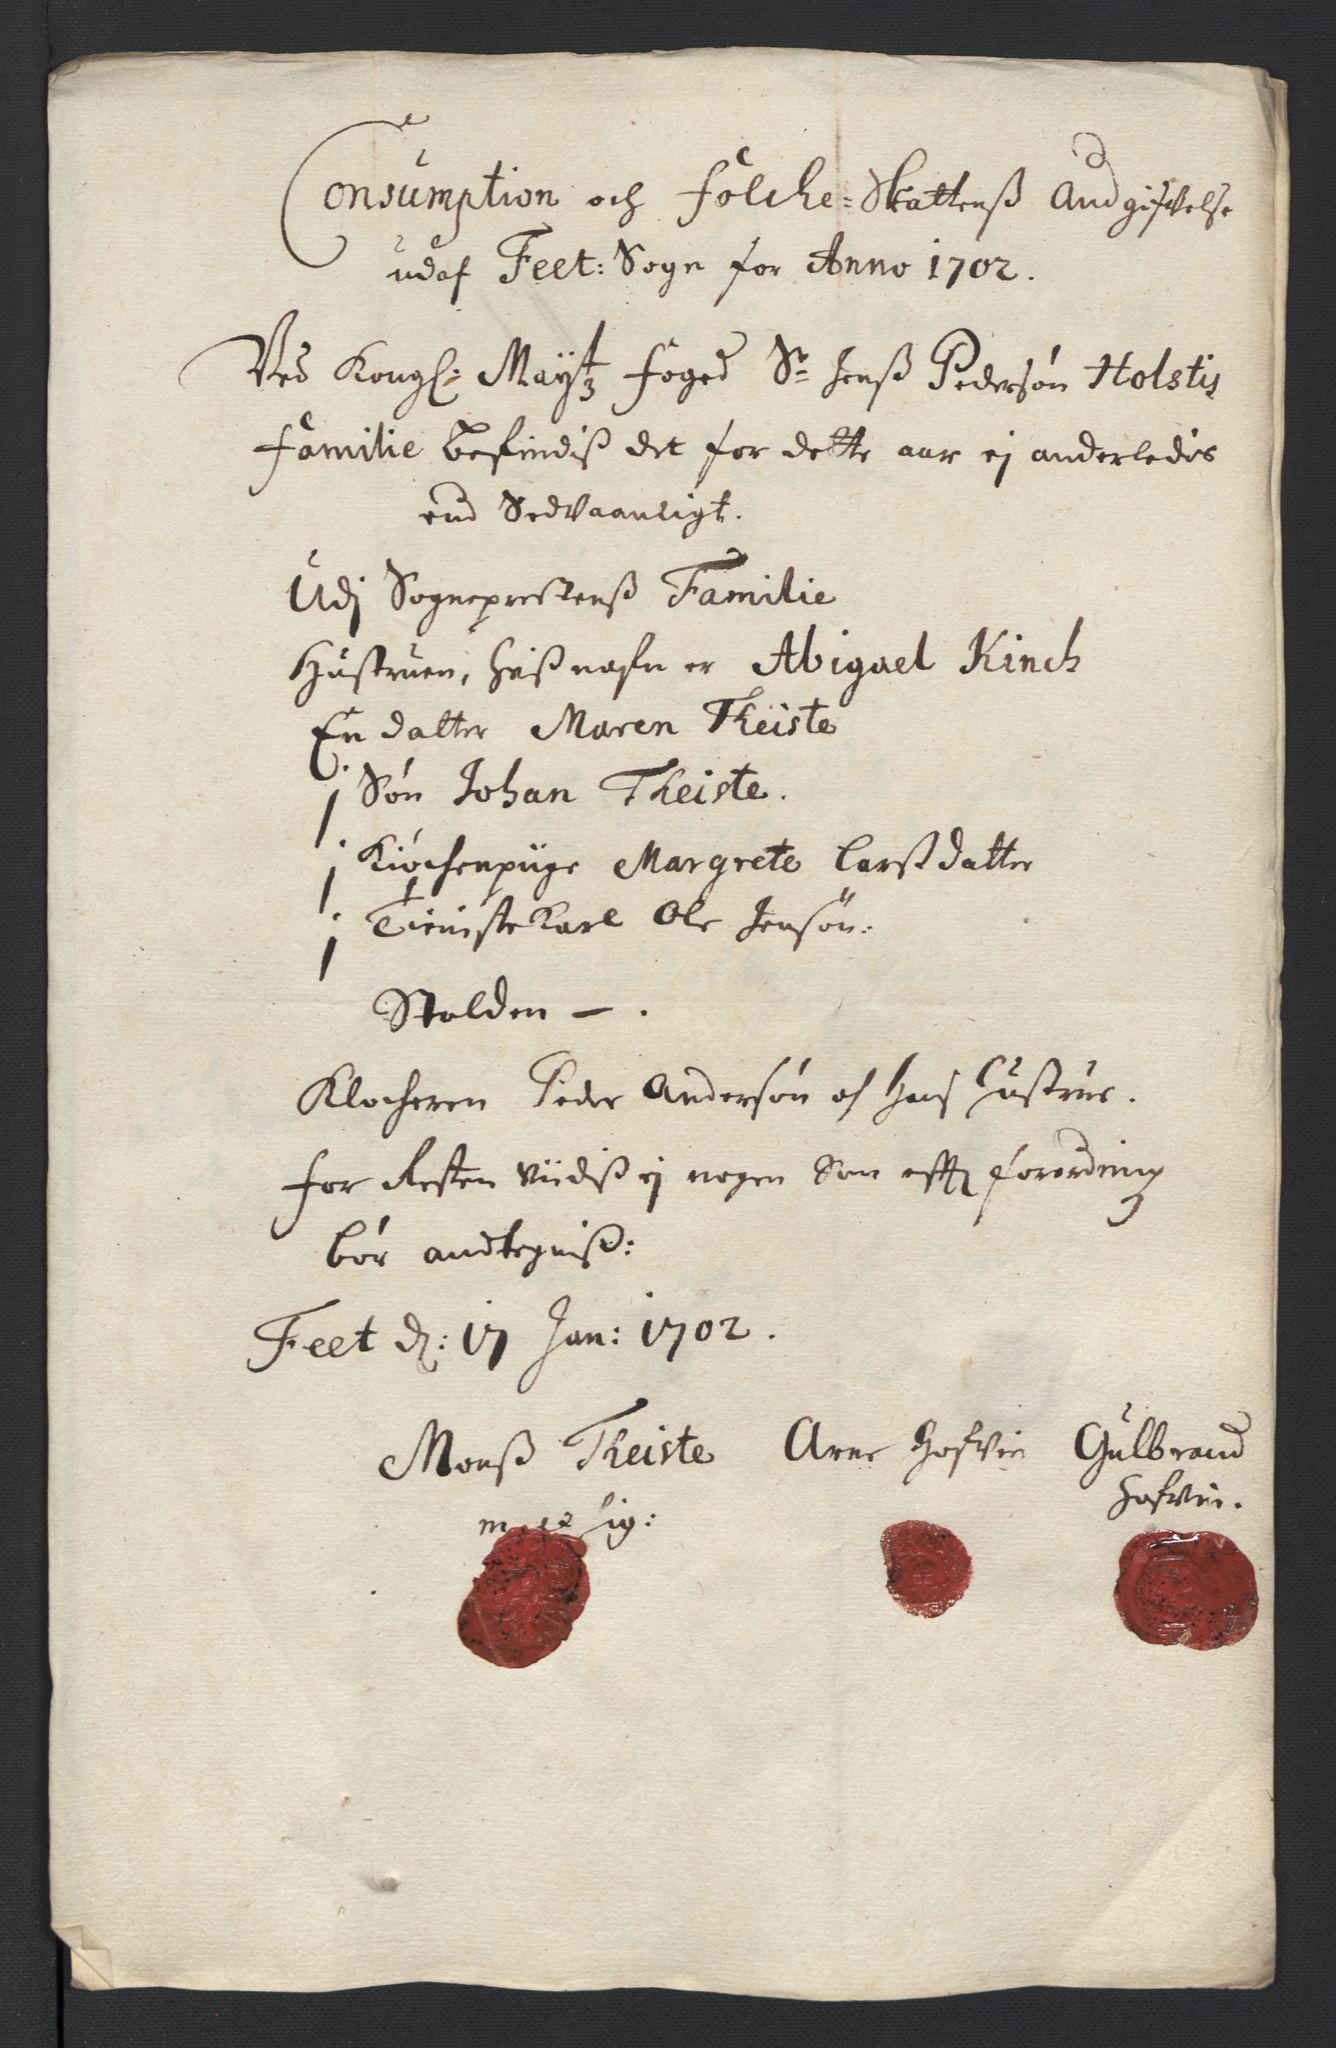 Consumption och Folche-Skattenß Andgifvelse
udaf Feet: Sogn for Anno 1702.
Ved Kongl: Maytz foged Sr Jenß Pedersøn Holstis
Familie befindiß det for dette aar ej anderledis
end Sedvaanligt.
Udj Sogneprestenß Familie
Hustruen, hvis nafn er Abigael Kinch
En datter Maren Theiste
j Søn Johan Theiste.
j Kiøchenpige Margrete Larßdatter
j Tieniste Karl Ole Jensøn:
Stolden — .
Klocheren Peder Andersøn og hans hustrue.
for Resten viidiß ej nogen Som efft forordning
bør andtegniß:
Feet d: 17 Jan: 1702.
Monß Theiste Arne Hofvin Gulbrand
Hofvin.